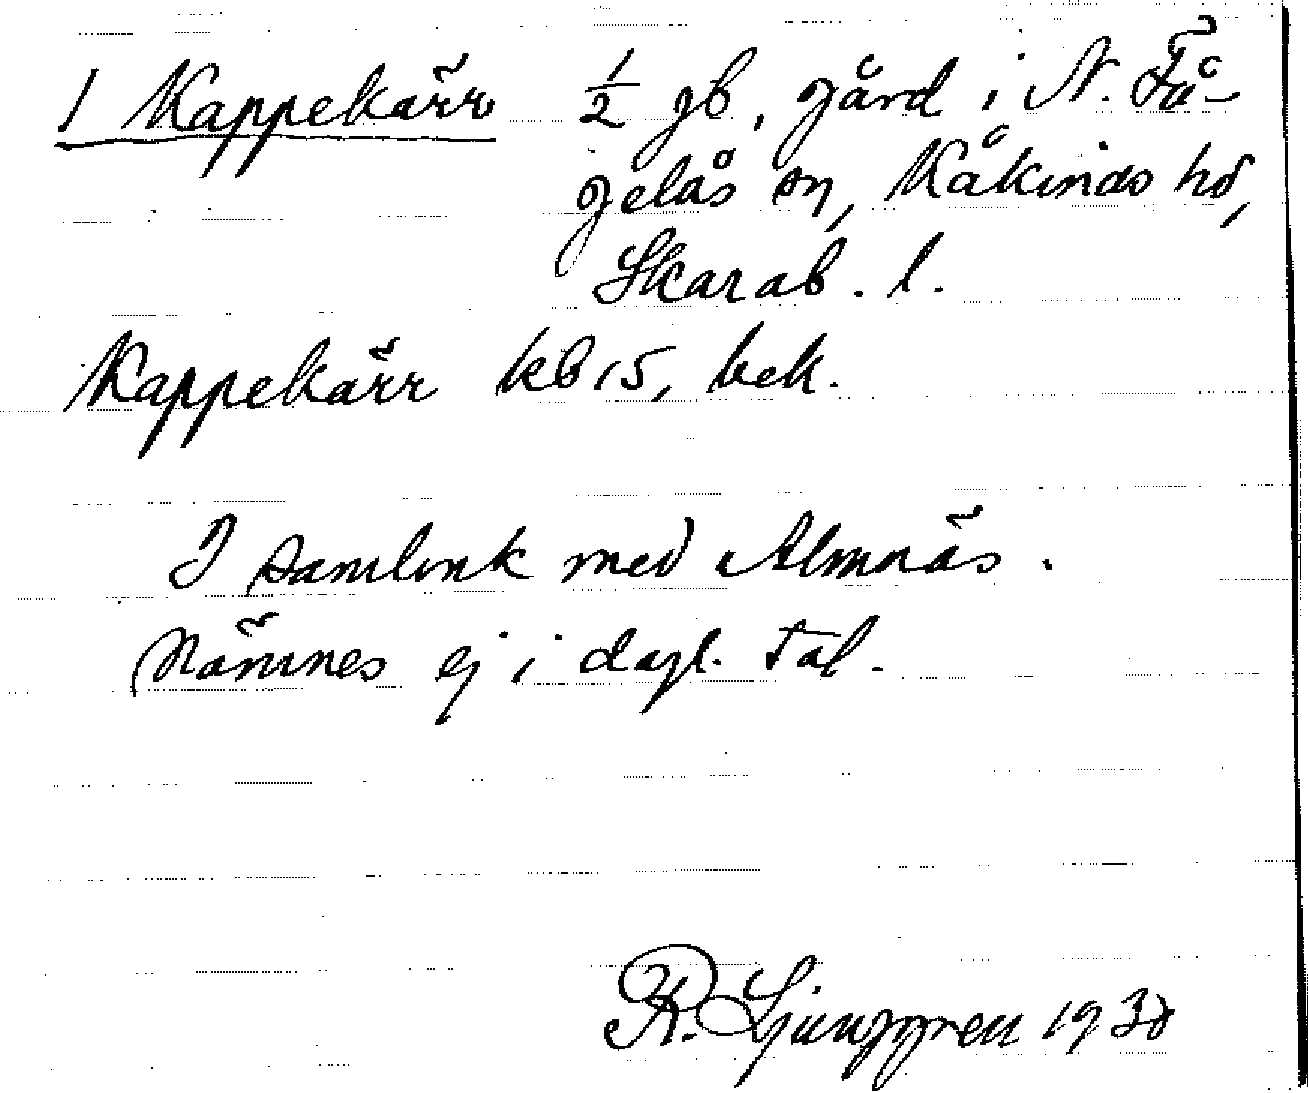 1 Kappekärr ½ gb, gård i N. Få-
gelås sn, Kåkinds hd,
Skarab. l.
Kappekärr kb 15, bek.
I sambruk med Almnäs.
Nämnes ej i dagl. tal.
R. Ljunggren